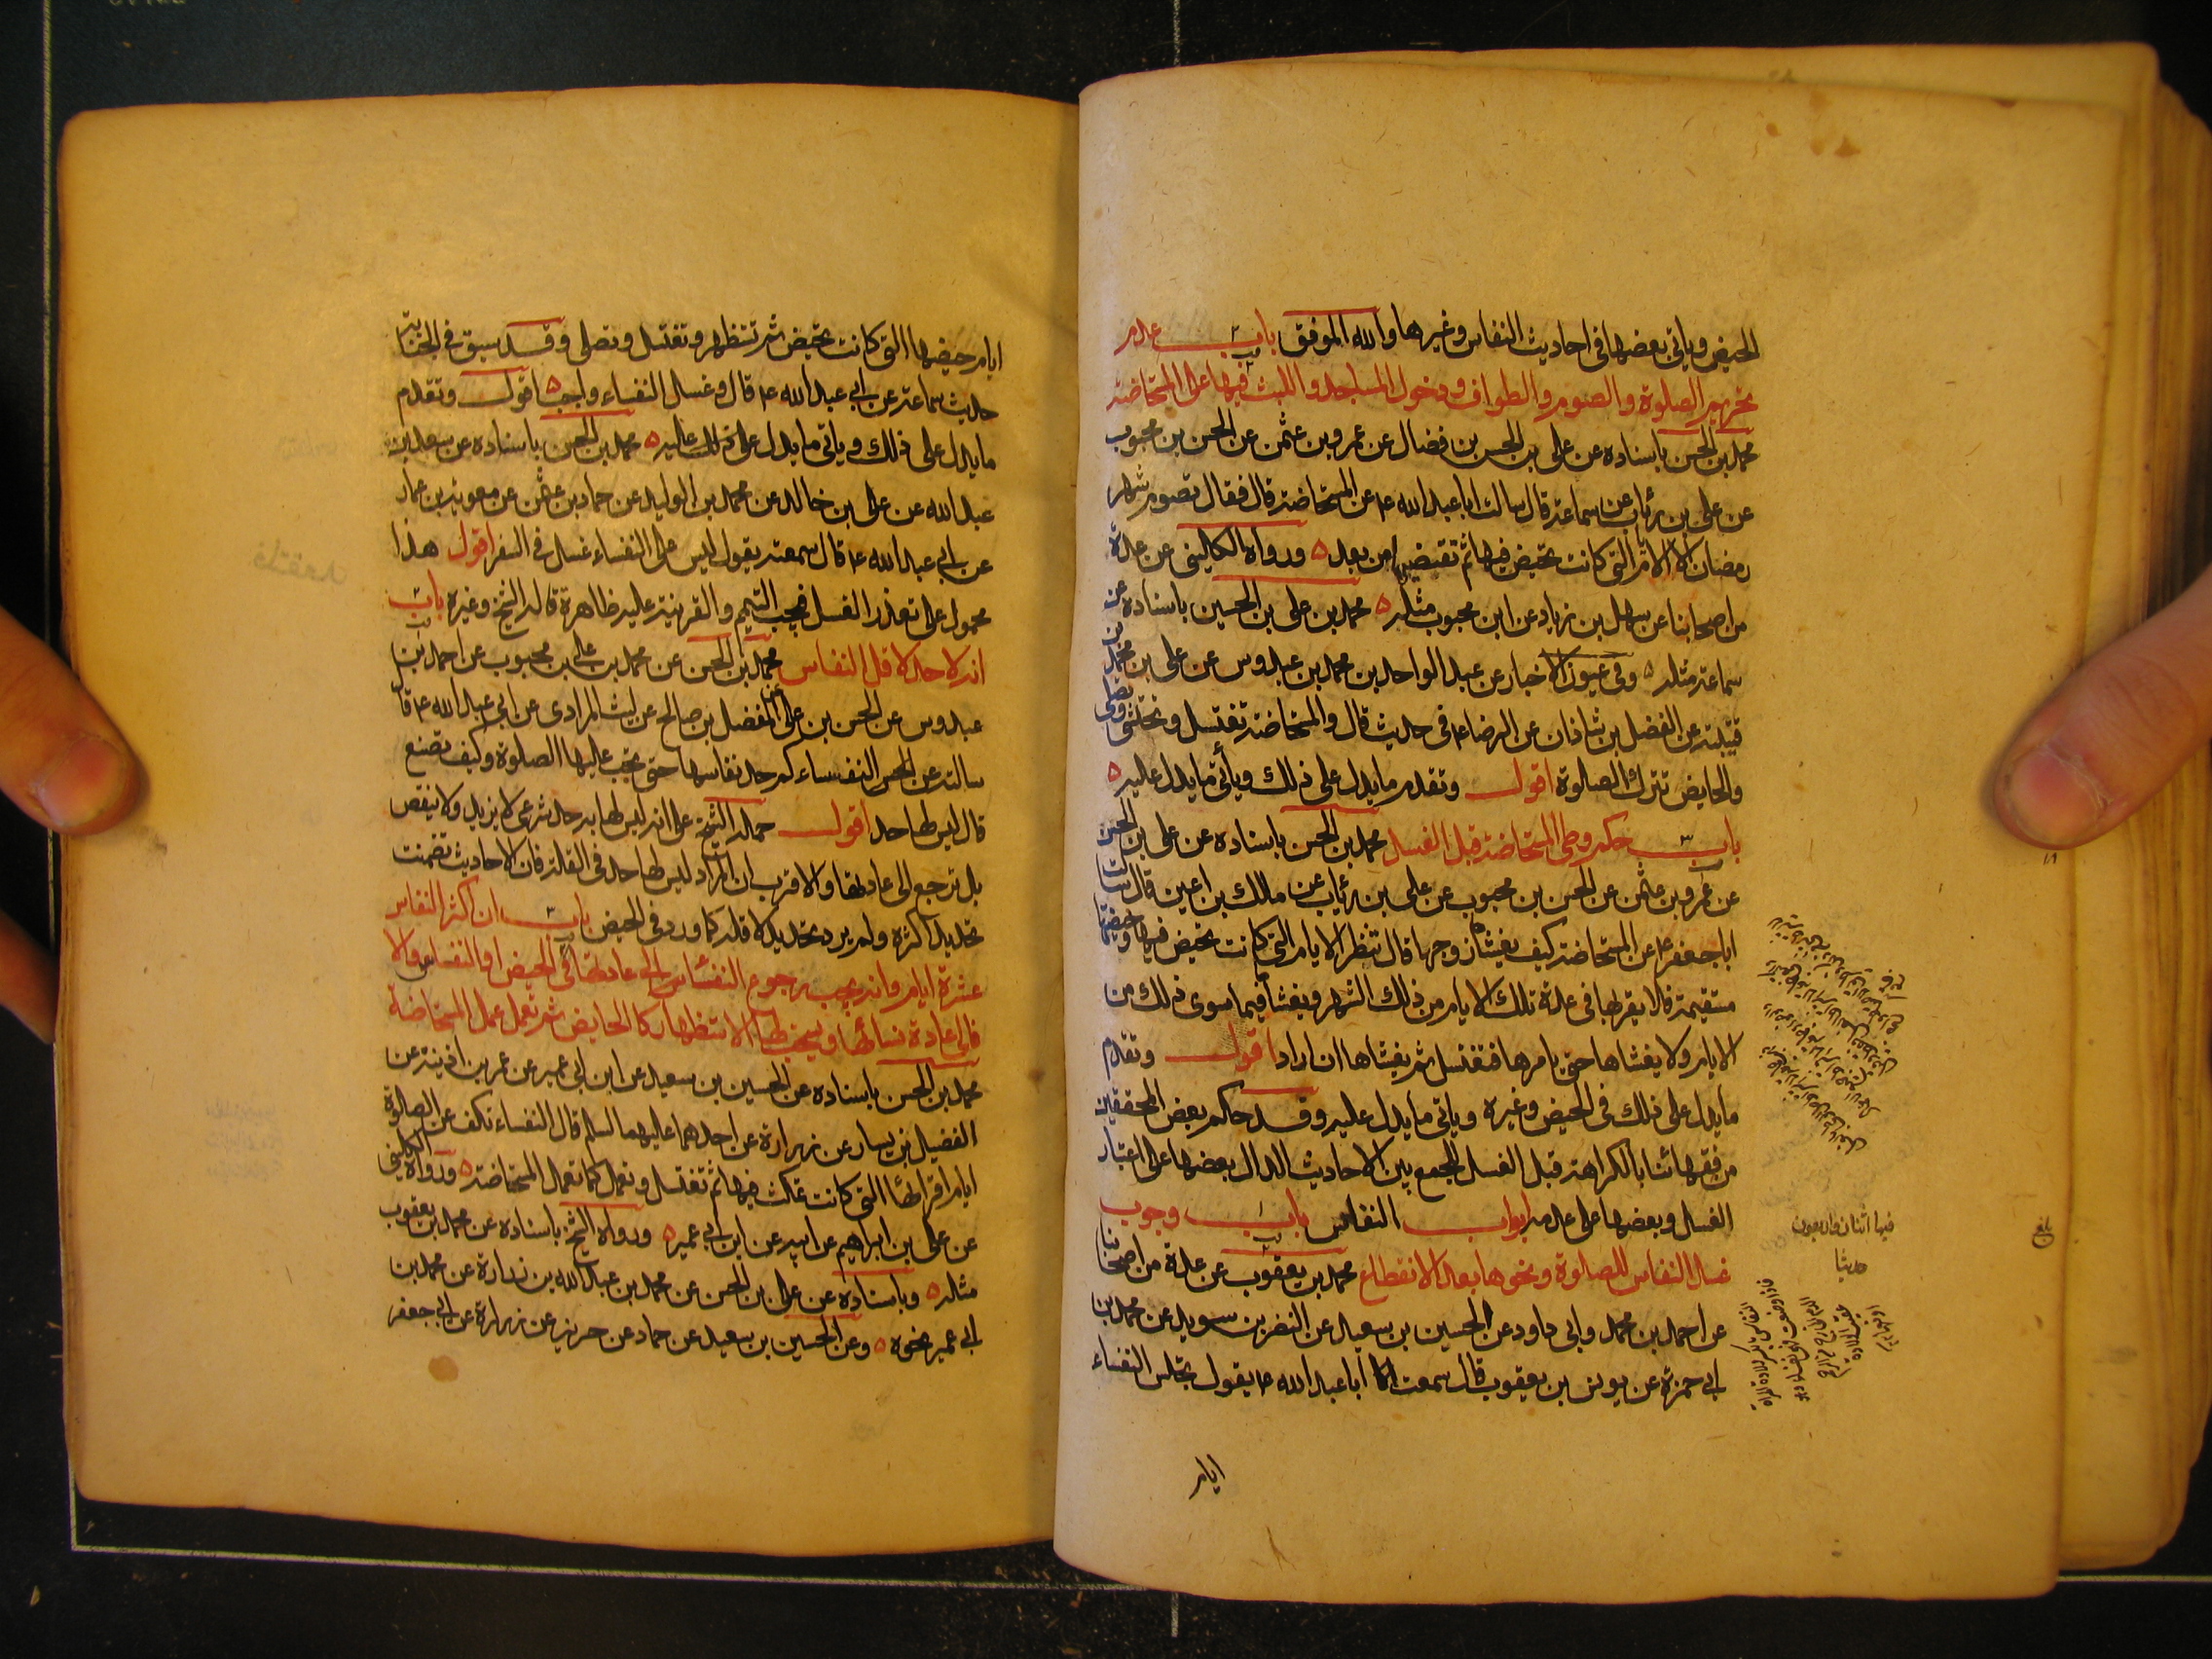 الحيض وياتى بعضها فى احاديث النفاس وغيرها والله الموفق باب عدم
تحريم الصلوة والصوم والطواف ودخول المساجد واللبث فيها على المستحاضة
محمد بن الحسن باسناده عن على بن الحسن بن فضال عن عمرو بن عثمن عن الحسن بن محبوب
عن على بن رئاب عن سماعة قال سالت ابا عبد الله ع عن المستحاضة قال فقال تصوم شهر
رمضان الا الايام التى كانت تحيض فيها ثم تقضيها من بعد ورواه الكلينى عن عدة
من اصحابنا عن سهل بن زياد عن ابن محبوب مثله محمد بن على بن الحسين باسناده عن
سماعة مثله وفى عيون الاخبار عن عبد الواحد بن محمد بن عبدوس عن على بن محمد بن
قتيبة عن الفضل بن شاذان عن الرضا ع فى حديث قال والمستحاضة تغتسل وتحتشى وتصلى
والحايض تترك الصلوة اقول وتقدم ما يدل على ذلك ويأتى ما يدل عليه
باب حكم وطى المستحاضة قبل الغسل محمد بن الحسن باسناده عن على بن الحسن
عن عمرو بن عثمن عن الحسن بن محبوب عن على بن رئاب عن مالك بن اعين قال سالت
ابا جعفر ع عن المستحاضة كيف يغشاها زوجها قال تنظر الايام التى كانت تحيض فيها وحيضتها
مستقيمة فلا يقربها فى عدة تلك الايام من ذلك الشهر ويغشاها فيما سوى ذلك من
الايام ولا يغشاها حتى يامرها فتغتسل ثم يغشاها ان اراد اقول وتقدم
ما يدل على ذلك فى الحيض وغيره وياتى ما يدل عليه وقد حكم بعض المحققين
من فقهائنا بالكراهة قبل الغسل للجمع بين الاحاديث الدال بعضها على اعتبار
الغسل وبعضها على عدمه ابواب النفاس باب وجوب
غسل النفاس للصلوة ونحوها بعد الانقطاع محمد بن يعقوب عن عدة من اصحابنا
عن احمد بن محمد وابى داود عن الحسين بن سعيد عن النضر بن سويد عن محمد بن
ابى حمزة عن يونس بن يعقوب قال سمعت ابا عبد الله ع يقول تجلس النفساء
ايام
فيها اثنان واربعون
حديثا
ايام حيضها التى كانت تحيض ثم تستظهر وتغتسل وتصلى وقد سبق فى الجنابة
حديث سماعة عن ابى عبد الله ع قال وغسل النفساء واجب اقول وتقدم
ما يدل على ذلك وياتى ما يدل عليه محمد بن الحسن باسناده عن سعد بن
عبد الله عن على بن خالد عن محمد بن الوليد عن حماد بن عثمن عن معوية بن عمار
عن ابى عبد الله ع قال سمعته يقول ليس على النفساء غسل فى السفر اقول هذا
محمول على تعذر الغسل فيجب التيمم والقرينة عليه ظاهرة قاله الشيخ وغيره باب
انه لا حد لاقل النفاس محمد بن الحسن عن محمد بن على بن محبوب عن احمد بن
عبدوس عن الحسن بن على عن المفضل بن صالح عن ليث المرادى عن ابى عبد الله ع قال
سالته عن النفساء كم حد نفاسها حتى يجب عليها الصلوة وكيف تصنع
قال ليس لها حد اقول حمله الشيخ على انه ليس لها به حد شرعى لا يزيد ولا ينقص
بل ترجع الى عادتها والاقرب ان المراد ليس لها حد فى القلة فان الاحاديث تضمنت
تحديد اكثره ولم يرد تحديد لاقله كما ورد فى الحيض باب ان اكثر النفاس
عشرة ايام وانه يجب رجوع النفساء الى عادتها فى الحيض او النفاس والا
فالى عادة نسائها ويستحب لها الاستظهار كالحايض ثم تعمل عمل المستحاضة
محمد بن الحسن باسناده عن الحسين بن سعيد عن ابن ابى عمير عن عمر بن اذينة عن
الفضيل بن يسار عن زرارة عن احدهما عليهما السلم قال النفساء تكف عن الصلوة
ايام اقرائها التى كانت تمكث فيها ثم تغتسل وتعمل كما تعمل المستحاضة ورواه الكلينى
عن على بن ابراهيم عن ابيه عن ابن ابى عمير ورواه الشيخ باسناده عن محمد بن يعقوب
مثله وباسناده عن على بن الحسن عن محمد بن عبد الله بن زرارة عن محمد بن
ابى عمير نحوه وعن الحسين بن سعيد عن حماد عن حريز عن زرارة عن ابى جعفر